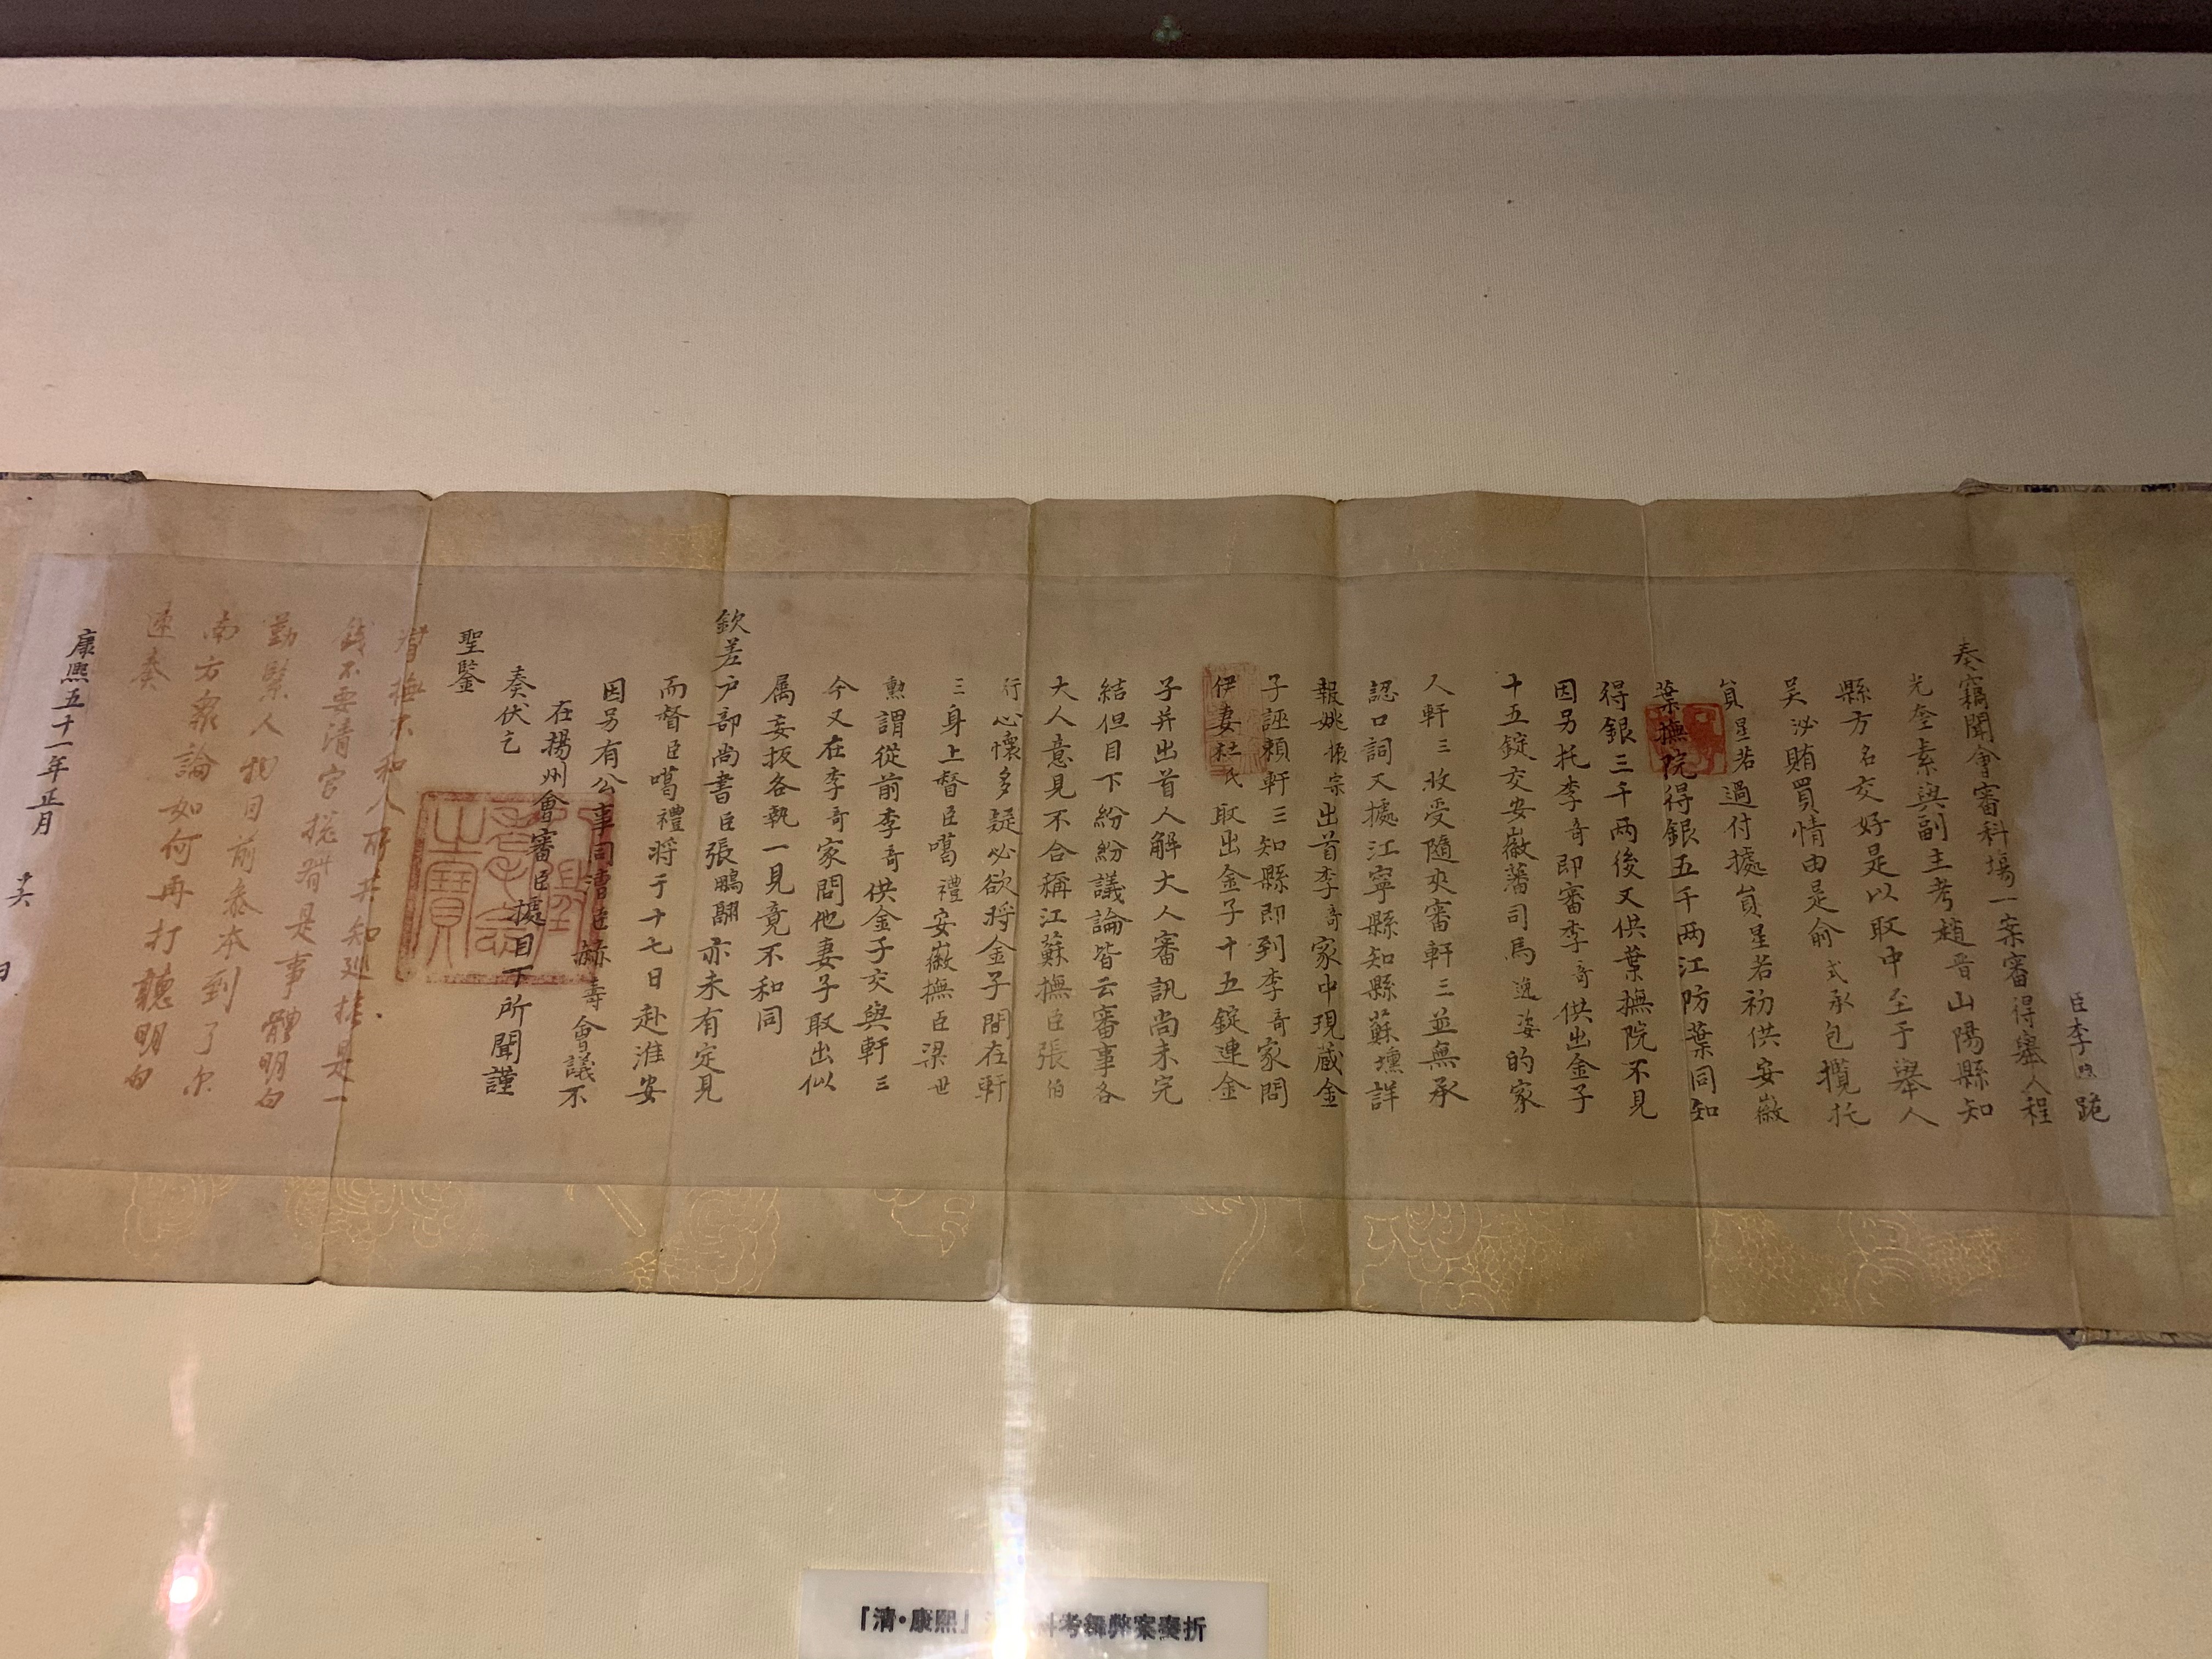 臣李煦跪
奏竊聞會審科場一案審得舉人程
光奎素與副主考趙晋山陽縣知
縣方名交好是以取中至于舉人
吳泌賄買情由是俞式承包攬托
貟星若過付據貟星若初供安徽
葉撫院得銀五千两江防葉同知
得銀三千两後又供葉撫院不見
因另托李奇即審李奇供出金子
十五錠交安徽藩司馬逸姿的家
人軒三收受隨夾審軒三並無承
認口詞又據江寧縣知縣蘇壎詳
報姚振宗出首李奇家中現蔵金
子誣賴軒三知縣即到李奇家問
伊妻杜氏取出金子十五錠連金
子并出首人解大人審訊尚未完
結但目下紛紛議論皆云審事各
大人意見不合稱江蘇撫臣張伯
行心懷多疑必欲将金子問在軒
三身上督臣噶禮安徽撫臣梁世
勲謂從前李奇供金子交與軒三
今又在李奇家問他妻子取出似
属妄扳各執一見竟不和同
欽差户部尚書臣張鵬翮亦未有定見
而督臣噶禮将于十七日赴淮安
因另有公事同漕臣赫壽會議不
在揚州會審臣據目下所聞謹
奏伏乞
聖鑒
督撫不和人所共知廵撫是一
錢不要清官摠督是事體明白
勤緊人物目前叅本到了尔
南方衆論如何再打聽明白
速奏
康熙五十一年正月 日
「清·康熙」 科考舞弊案奏折